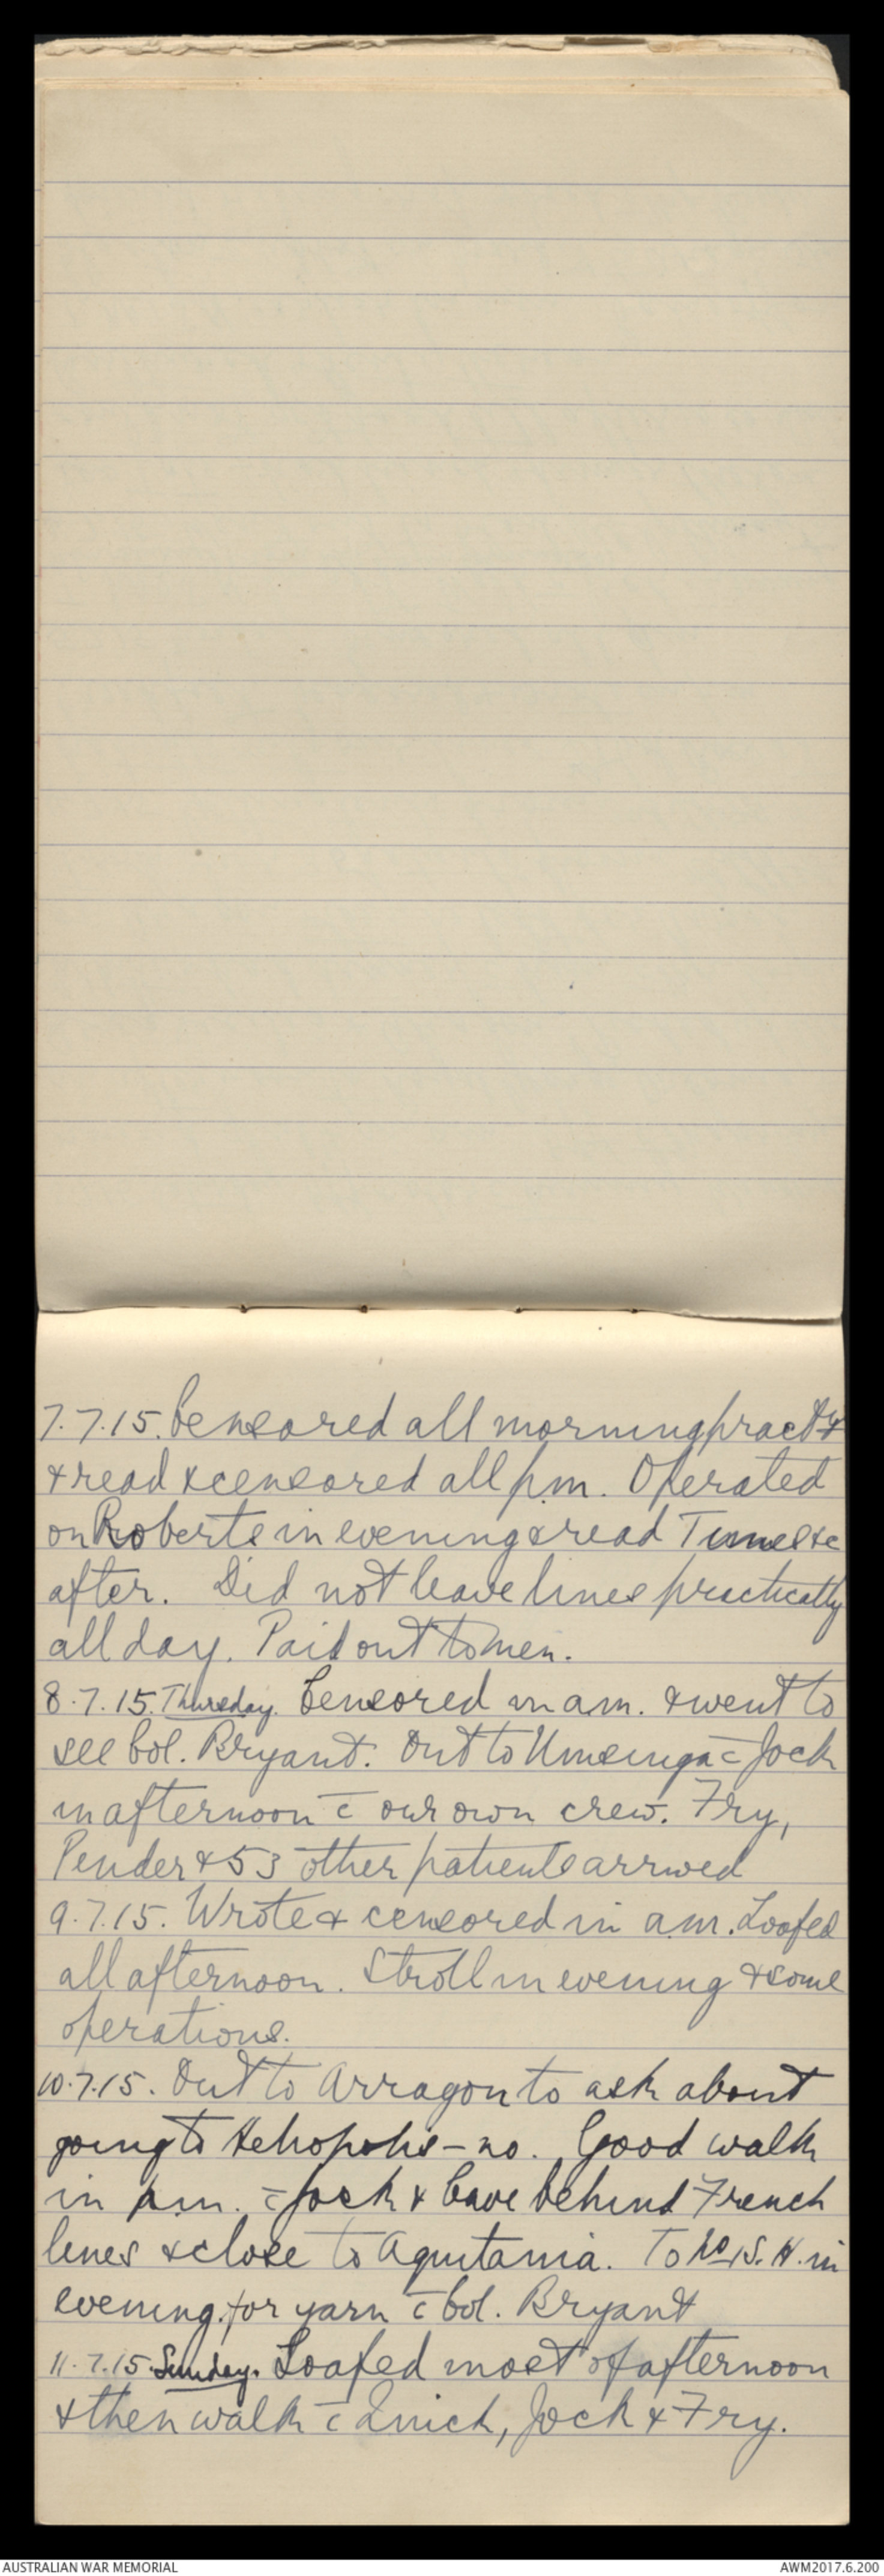 7.7.15. Censored all morning pract'y
& read & censored all p.m. Operated
on Roberts in evening & read Times &c
after. Did not leave lines practically
all day. Paid out to men.
8.7.15. Thursday. Censored in a.m. & went to
see Col. Bryant. Out to Umsinga c̄ Jock
in afternoon c̄ our own crew. Fry,
Pender & 53 other patients arrived
9.7.15. Wrote & censored in a.m. Loafed
all afternoon. Stroll in evening & some
operations.
10.7.15. Out to Arragon to ask about
going to Heliopolis - no. Good walk
in p.m. c̄ Jock & Cave behind French
lines & close to Aquitania. To 1S. H. in
evening for yarn c̄ Col. Bryant
11.7.15. Sunday. Loafed most of afternoon
& then walk c̄ Quick, Jock & Fry.
AUSTRALIAN WAR MEMORIAL
AWM2017.6.200